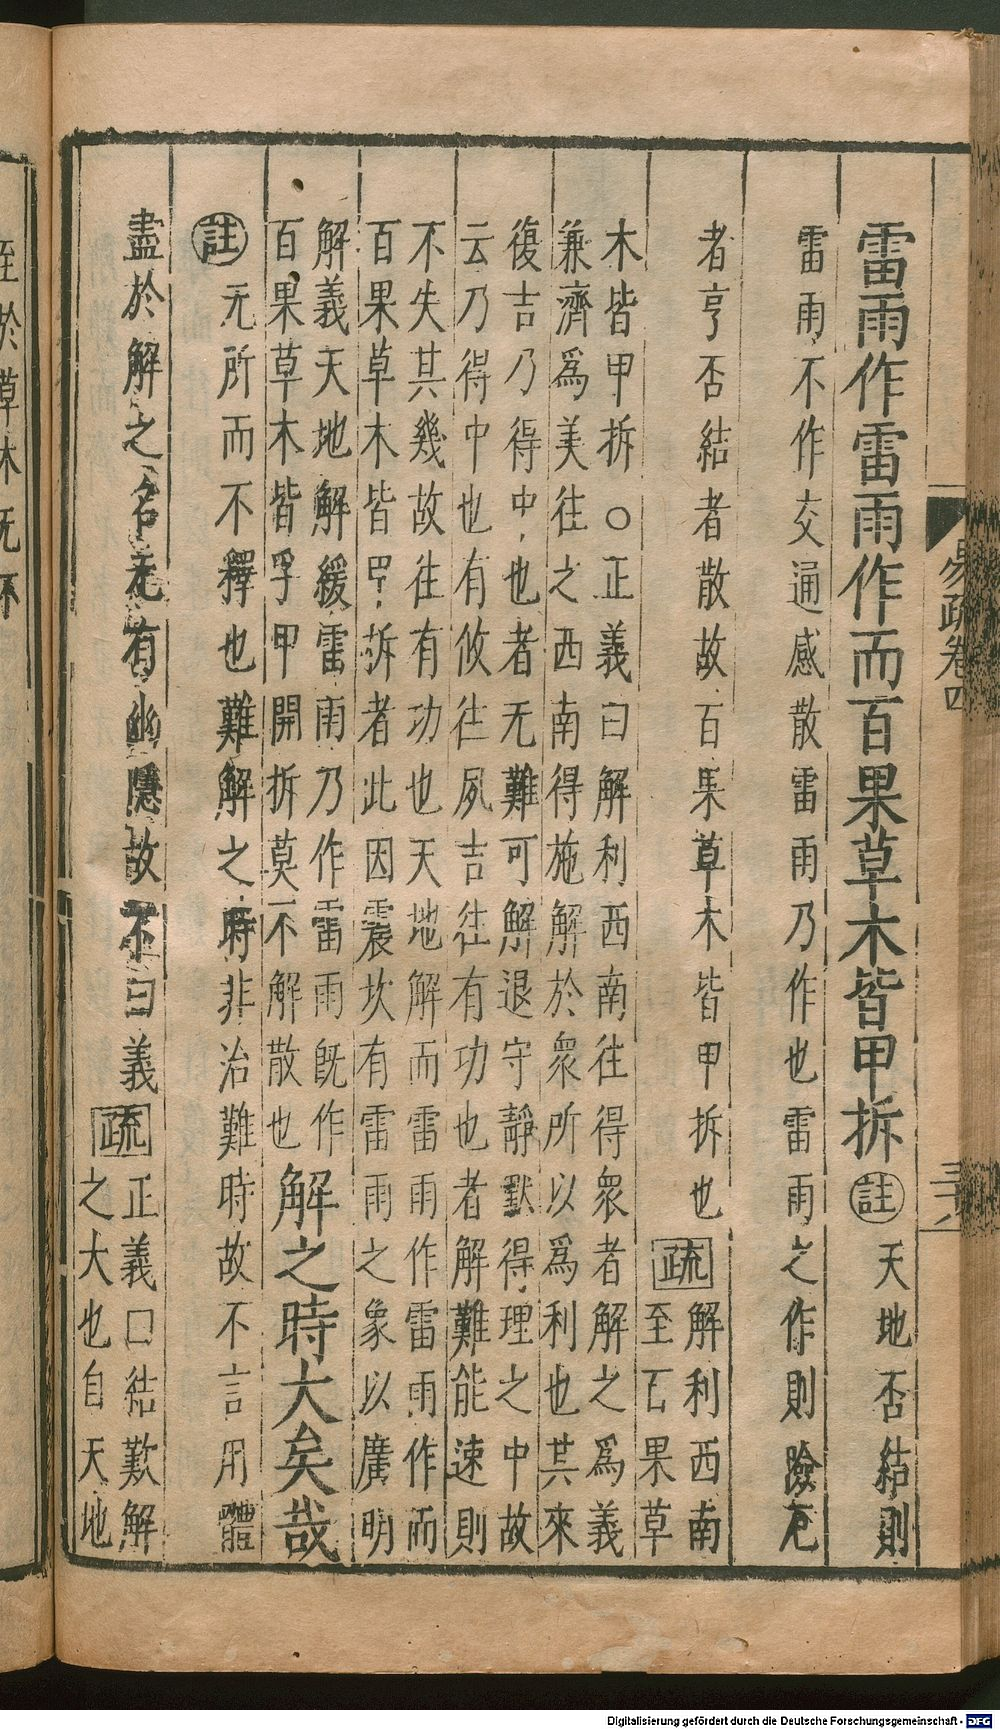 易疏卷四
三十八
雷雨作雷雨作而百果草木皆甲拆註天地否結則
雷雨不作交通感散雷雨乃作也雷雨之作則險厄
者亨否結者散故百果草木皆甲拆也疏解利西南
至百果草
木皆甲拆○正義曰解利西南往得眾者解之為義
兼濟為美往之西南得施解於眾所以為利也其來
復吉乃得中也者无難可解退守靜默得理之中故
云乃得中也有攸往夙吉往有功也者解難能速則
不失其幾故往有功也天地解而雷雨作雷雨作而
百果草木皆甲拆者此因震坎有雷雨之象以廣明
解義天地解緩雷雨乃作雷雨既作
百果草木皆孚甲開拆莫不解散也解之時大矣哉
註无所而不釋也難解之時非治難時故不言用體
盡於解之名无有幽隱故不曰義疏正義曰結歎解
之大也自天地
至於草木无不
Digitalisierung gefördert durch die Deutsche Forschungsgemeinschaft - DFG